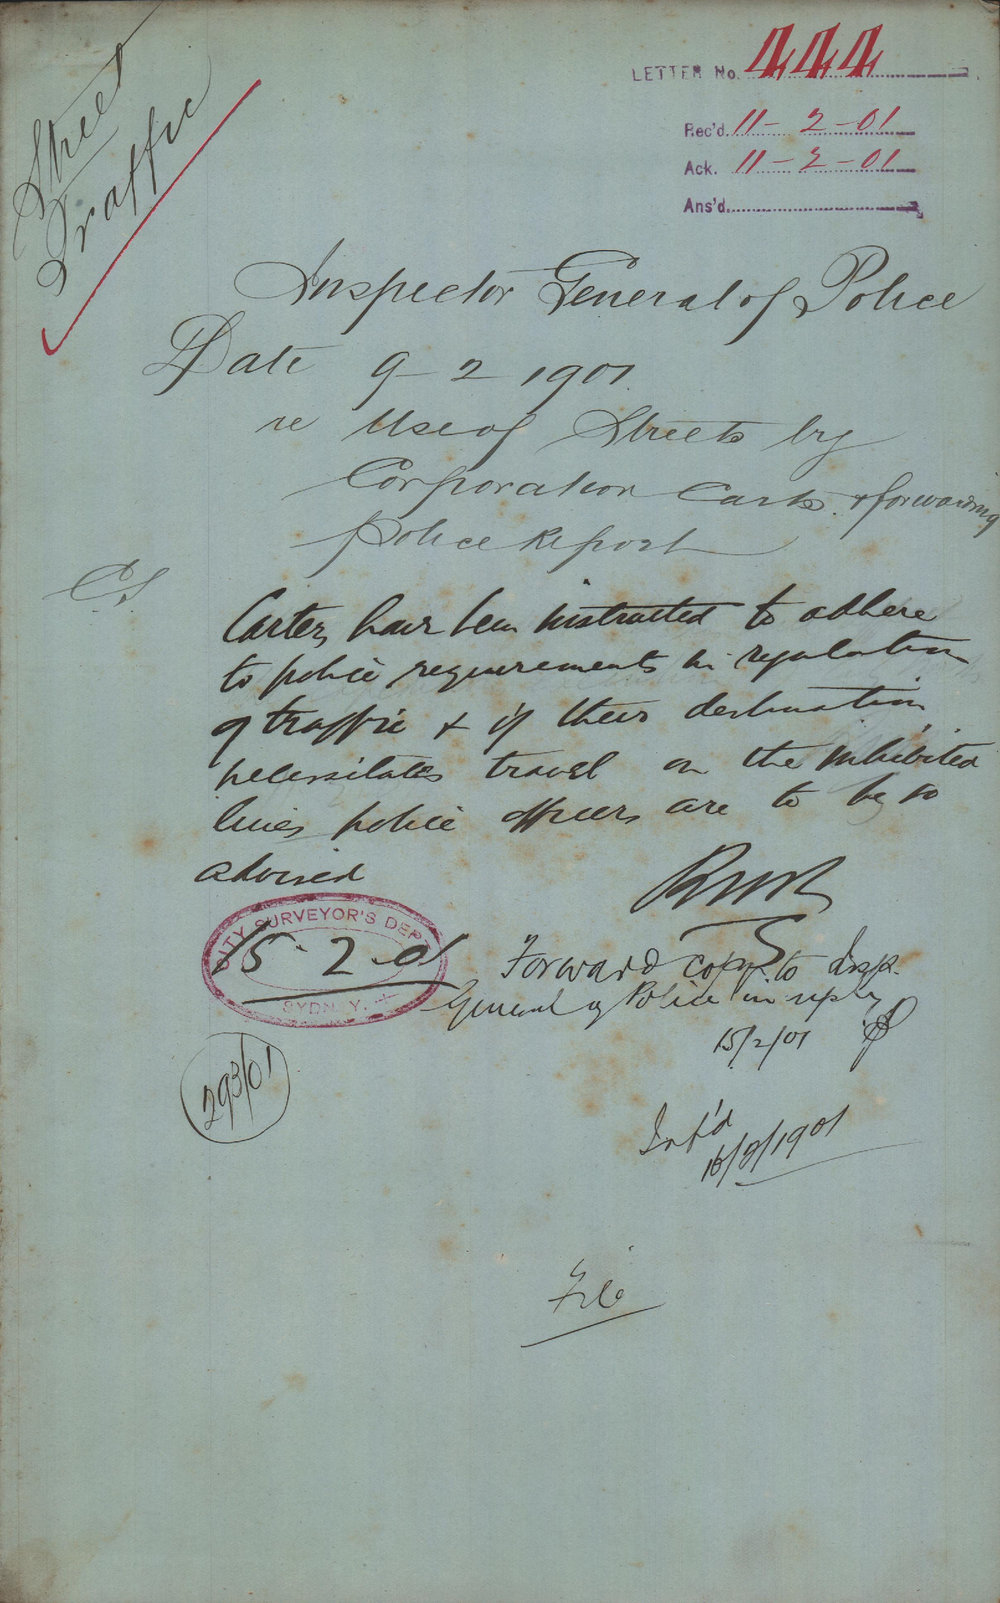 Street
Traffic
LETTER No. 444
Rec'd. 11-2-01
Ack. 11-2-01
Ans'd.
Inspector General of Police
Date 9-2 1901
re Use of Streets by
Corporation Carts & forwarding
police Report
C.S.
Carters have been instructed to adhere
to police requirements in regulation
of traffic & if their destination
necessitates travel on the inhibited
lines police officers are to be so
advised
CITY SURVEYOR'S DEPT
15-2-01
SYDNEY.
Forward copy to Insp.
General of Police in reply
15/2/01
293/01
Inf'd
16/2/1901
File